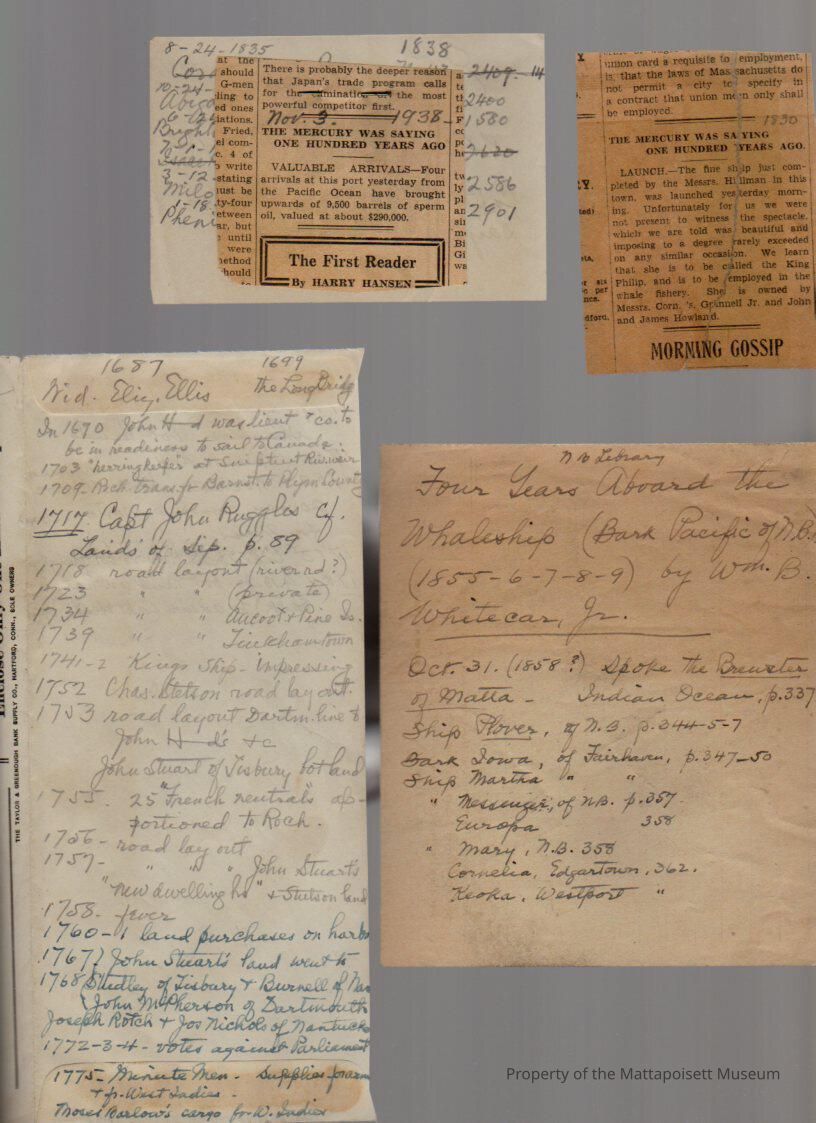 8-24-1835
1838
at the
should
G-men
ling to
ed ones
iations.
Fried,
el com-
c. 4 of
write
stating
ust be
ty-four
etween
ar, but
until
were
ethod
hould
There is probably the deeper reason
that Japan's trade program calls
for the elimination of the most
powerful competitor first.
Nov. 3. 1938-
THE MERCURY WAS SAYING
ONE HUNDRED YEARS AGO
VALUABLE ARRIVALS—Four
arrivals at this port yesterday from
the Pacific Ocean have brought
upwards of 9,500 barrels of sperm
oil, valued at about $290,000.
The First Reader
By HARRY HANSEN
2409-14
2400
1580
2630
2586
2901
union card a requisite to employment,
is, that the laws of Massachusetts do
not permit a city to specify in
a contract that union men only shall
be employed.
1830
THE MERCURY WAS SAYING
ONE HUNDRED YEARS AGO.
LAUNCH.—The fine ship just com-
pleted by the Messrs. Hillman in this
town, was launched yesterday morn-
ing. Unfortunately for us we were
not present to witness the spectacle,
which we are told was beautiful and
imposing to a degree rarely exceeded
on any similar occasion. We learn
that she is to be called the King
Philip, and is to be employed in the
whale fishery. She is owned by
Messrs. Corn.'s. Grinnell Jr. and John
and James Howland.
MORNING GOSSIP
1687 1699
Wid. Eliz. Ellis the Long Bridg
In 1690 John H--d was lieut & co. to
be in readiness to sail to Canada.
1703 "herring keeper" at Sniptuit Riv. weir
1709. Roch. trans. fr Barnst. to Plym County
1717 Capt John Ruggles cf.
Lands of Sip. p. 89
1718 road layout (river rd?)
1723 " " (private)
1734 " " Aucoot & Pine Is.
1739 " " Tinkhamtown
1741-2 Kings Ship - impressing
1752 Chas. Stetson road layout.
1753 road layout Dartm. line to
John H--d's &c
John Stuart of Tisbury bot land
1755. 25 "French neutrals" ap-
portioned to Roch.
1756- road lay out
1757- " " " John Stuart's
"new dwelling hs" & Stetson land
1758. fever
1760-1 land purchases on harbo
1767) John Stuart's land went to
1768 Studley of Tisbury & Burnell of Nan
John McPherson of Dartmouth
Joseph Rotch & Jos Nichols of Nantucke
1772-3-4- votes against Parliament
1775- Minute Men - Supplies for arm
& fr. West Indies -
Moses Barlow's cargo for W. Indies
THE TAYLOR & GREENOUGH BANK SUPPLY CO., HARTFORD, CONN., SOLE OWNERS
N B Library
Four Years Aboard the
Whaleship (Bark Pacific of N.B.)
(1855-6-7-8-9) by Wm. B.
Whitecar, Jr.
Oct. 31. (1858?) Spoke the Brewster
of Matta - Indian Ocean, p.337
Ship Plover, of N.B. p.344-5-7
Bark Iowa, of Fairhaven, p.347-50
Ship Martha " "
" Messenger, of NB. p.357
Europa 358
" Mary, N.B. 358
Cornelia, Edgartown, 362.
Keoka, Westport "
Property of the Mattapoisett Museum